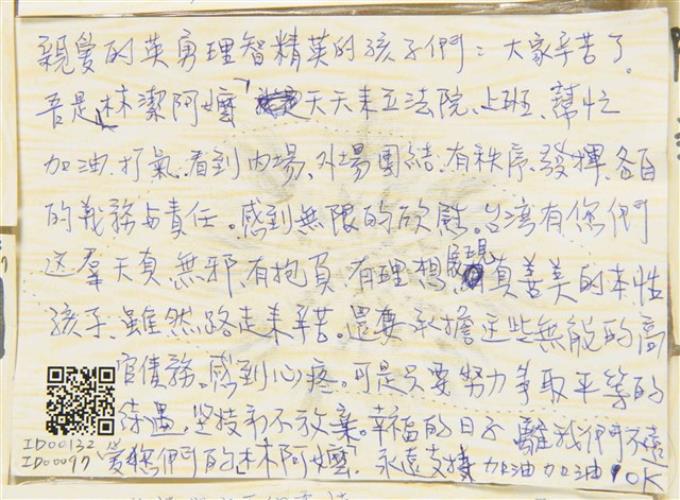 親愛的英勇理智精英的孩子們：大家辛苦了。
吾是「林潔阿嬤」天天來立法院、上班、幫忙
加油、打氣、看到內場、外場團結、有秩序、發揮、各自
的義務与責任。感到無限的欣慰。台湾有您們
這羣天真、無邪、有抱負、有理想、展現真善美的本性
孩子、雖然、路走来辛苦。還要承擔這些無能的高
官債務。感到心疼。可是只要努力爭取平等的
待遇、坚持而不放棄。幸福的日子離我們不遠
ID00132
ID00097 愛您們的「林阿嬤」永遠支持加油加油OK